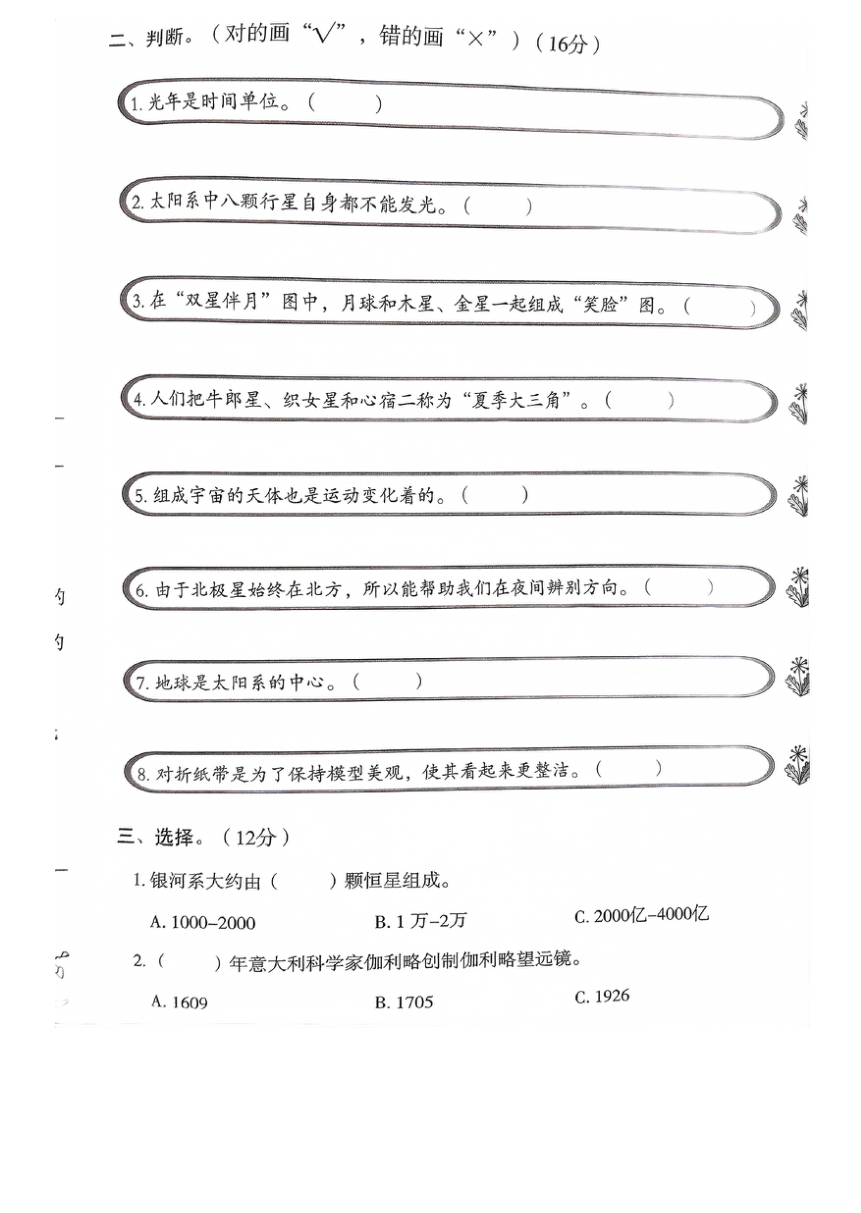 二、判断。（对的画“√”，错的画“×”）（16分）
1. 光年是时间单位。（　　）
2. 太阳系中八颗行星自身都不能发光。（　　）
3. 在“双星伴月”图中，月球和木星、金星一起组成“笑脸”图。（　　）
4. 人们把牛郎星、织女星和心宿二称为“夏季大三角”。（　　）
5. 组成宇宙的天体也是运动变化着的。（　　）
6. 由于北极星始终在北方，所以能帮助我们在夜间辨别方向。（　　）
的
的
7. 地球是太阳系的中心。（　　）
8. 对折纸带是为了保持模型美观，使其看起来更整洁。（　　）
三、选择。（12分）
1. 银河系大约由（　　）颗恒星组成。
A. 1000–2000 B. 1万–2万 C. 2000亿–4000亿
2. （　　）年意大利科学家伽利略创制伽利略望远镜。
A. 1609 B. 1705 C. 1926